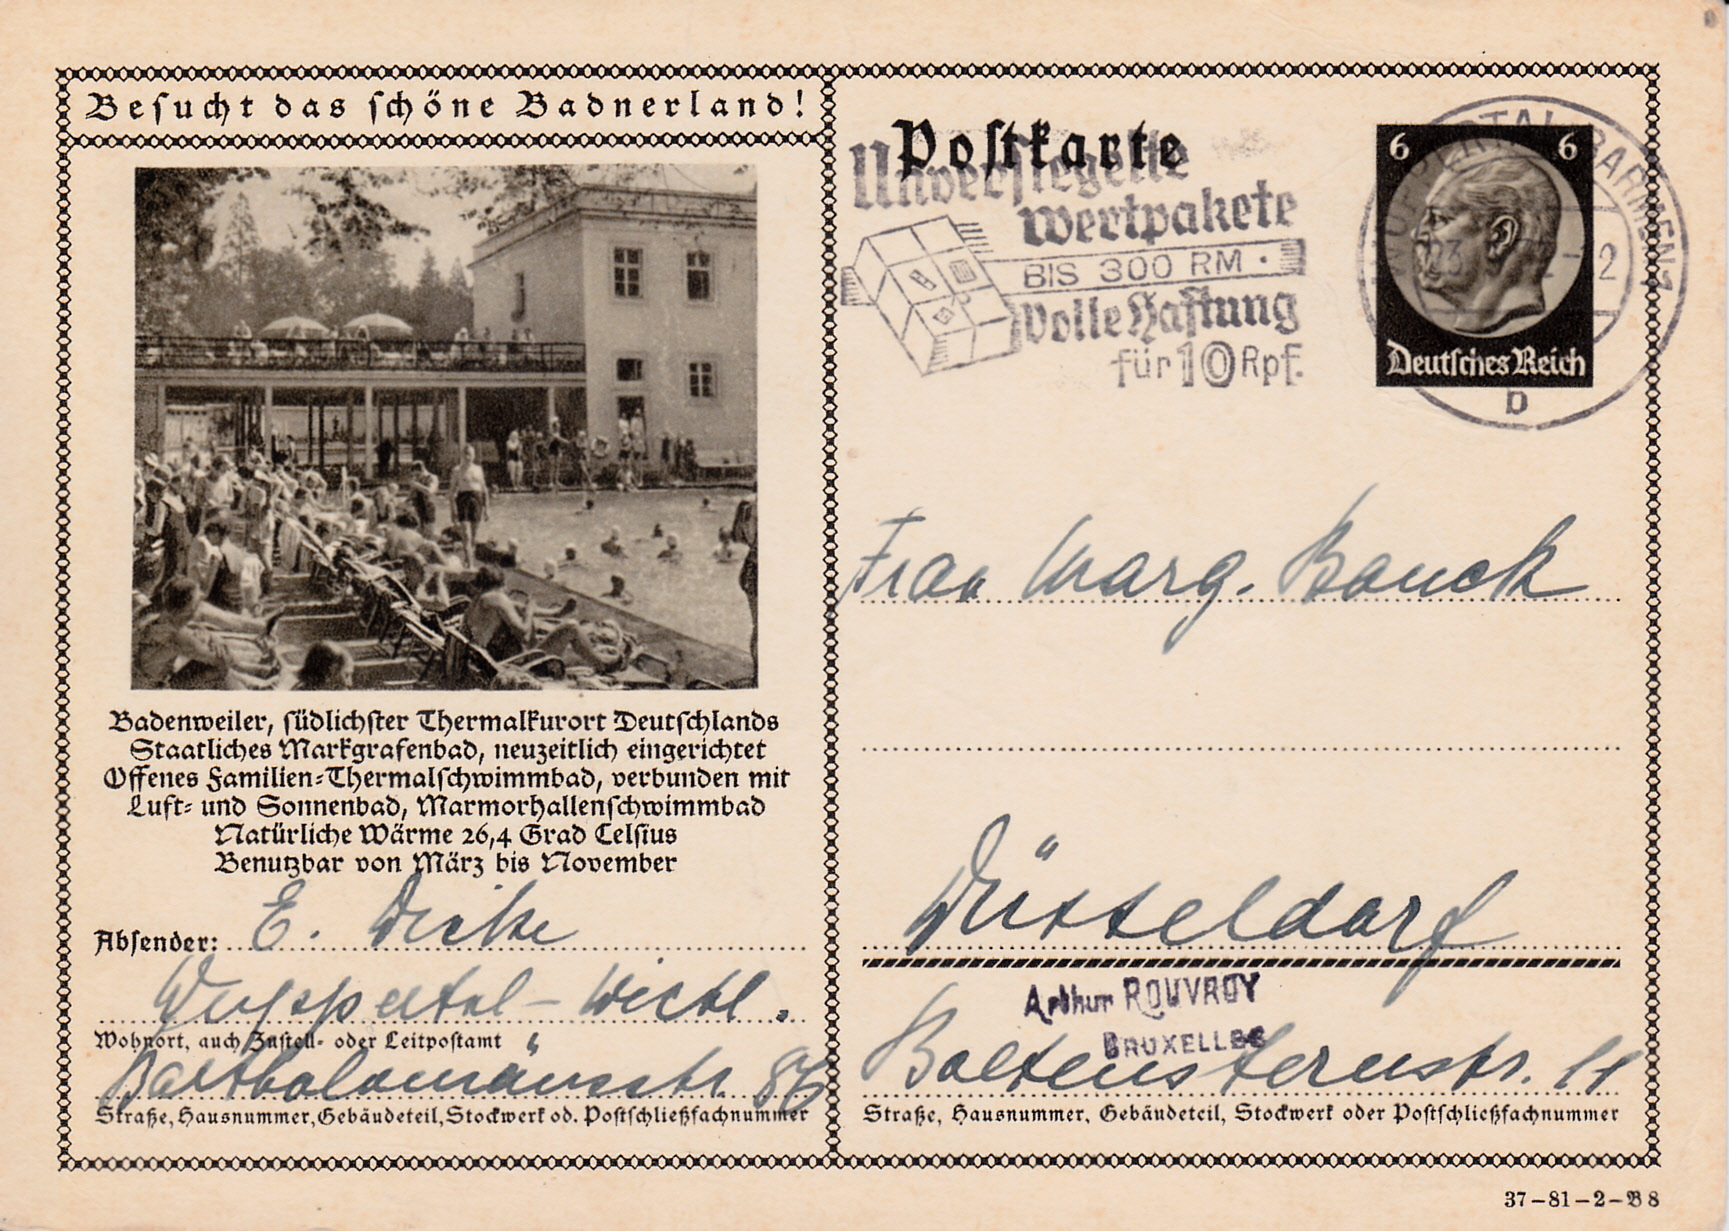 Besucht das schöne Badnerland!
Badenweiler, südlichster Thermalkurort Deutschlands
Staatliches Markgrafenbad, neuzeitlich eingerichtet
Offenes Familien-Thermalschwimmbad, verbunden mit
Luft- und Sonnenbad, Marmorhallenschwimmbad
Natürliche Wärme 26,4 Grad Celsius
Benutzbar von März bis November
Absender: E. Dicke
Wuppertal - Wichl.
Wohnort, auch Zustell- oder Leitpostamt
Bartholomäusstr. 86
Straße, Hausnummer, Gebäudeteil, Stockwerk od. Postschließfachnummer
Postkarte
Unversiegelte
Wertpakete
BIS 300 RM ·
Volle Haftung
für 10 Rpf.
WUPPERTAL-BARMEN 1
23
2
b
6 6
Deutsches Reich
Frau Marg. Bauck
Düsseldorf
Arthur ROUVROY
BRUXELLES
Boltensternstr. 11
Straße, Hausnummer, Gebäudeteil, Stockwerk oder Postschließfachnummer
37-81-2-B8